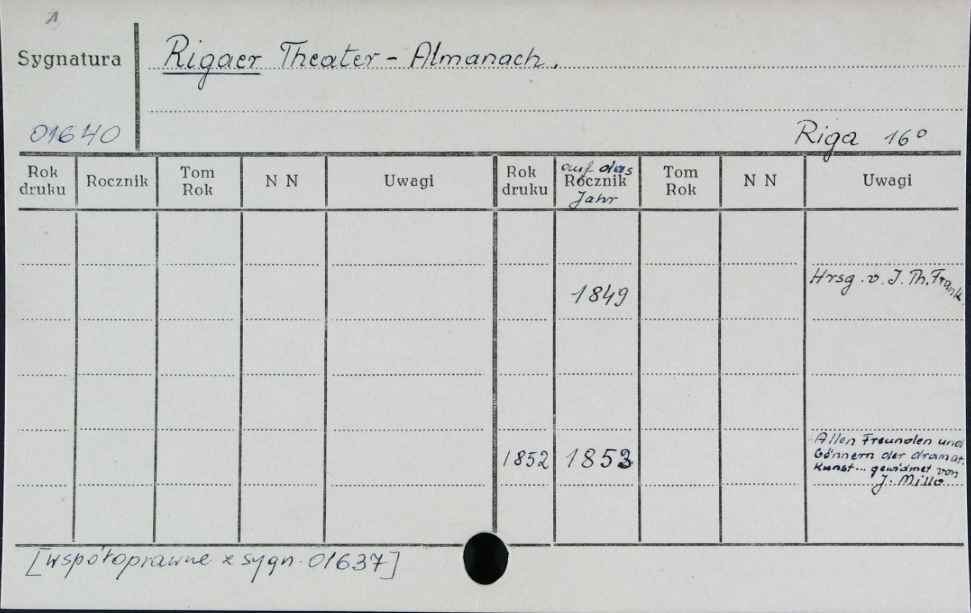 1
Sygnatura
Rigaer Theater - Almanach.
01640
Riga 16°
Rok druku Rocznik Tom Rok N N Uwagi Rok druku auf das Rocznik Jahr Tom Rok N N Uwagi
1849 Hrsg. v. J. Th. Frank.
1852 1853 Allen Freunden und
Gönnern der dramat.
Kunst... gewidmet von
J. Millo
[współoprawne z sygn. 01637]